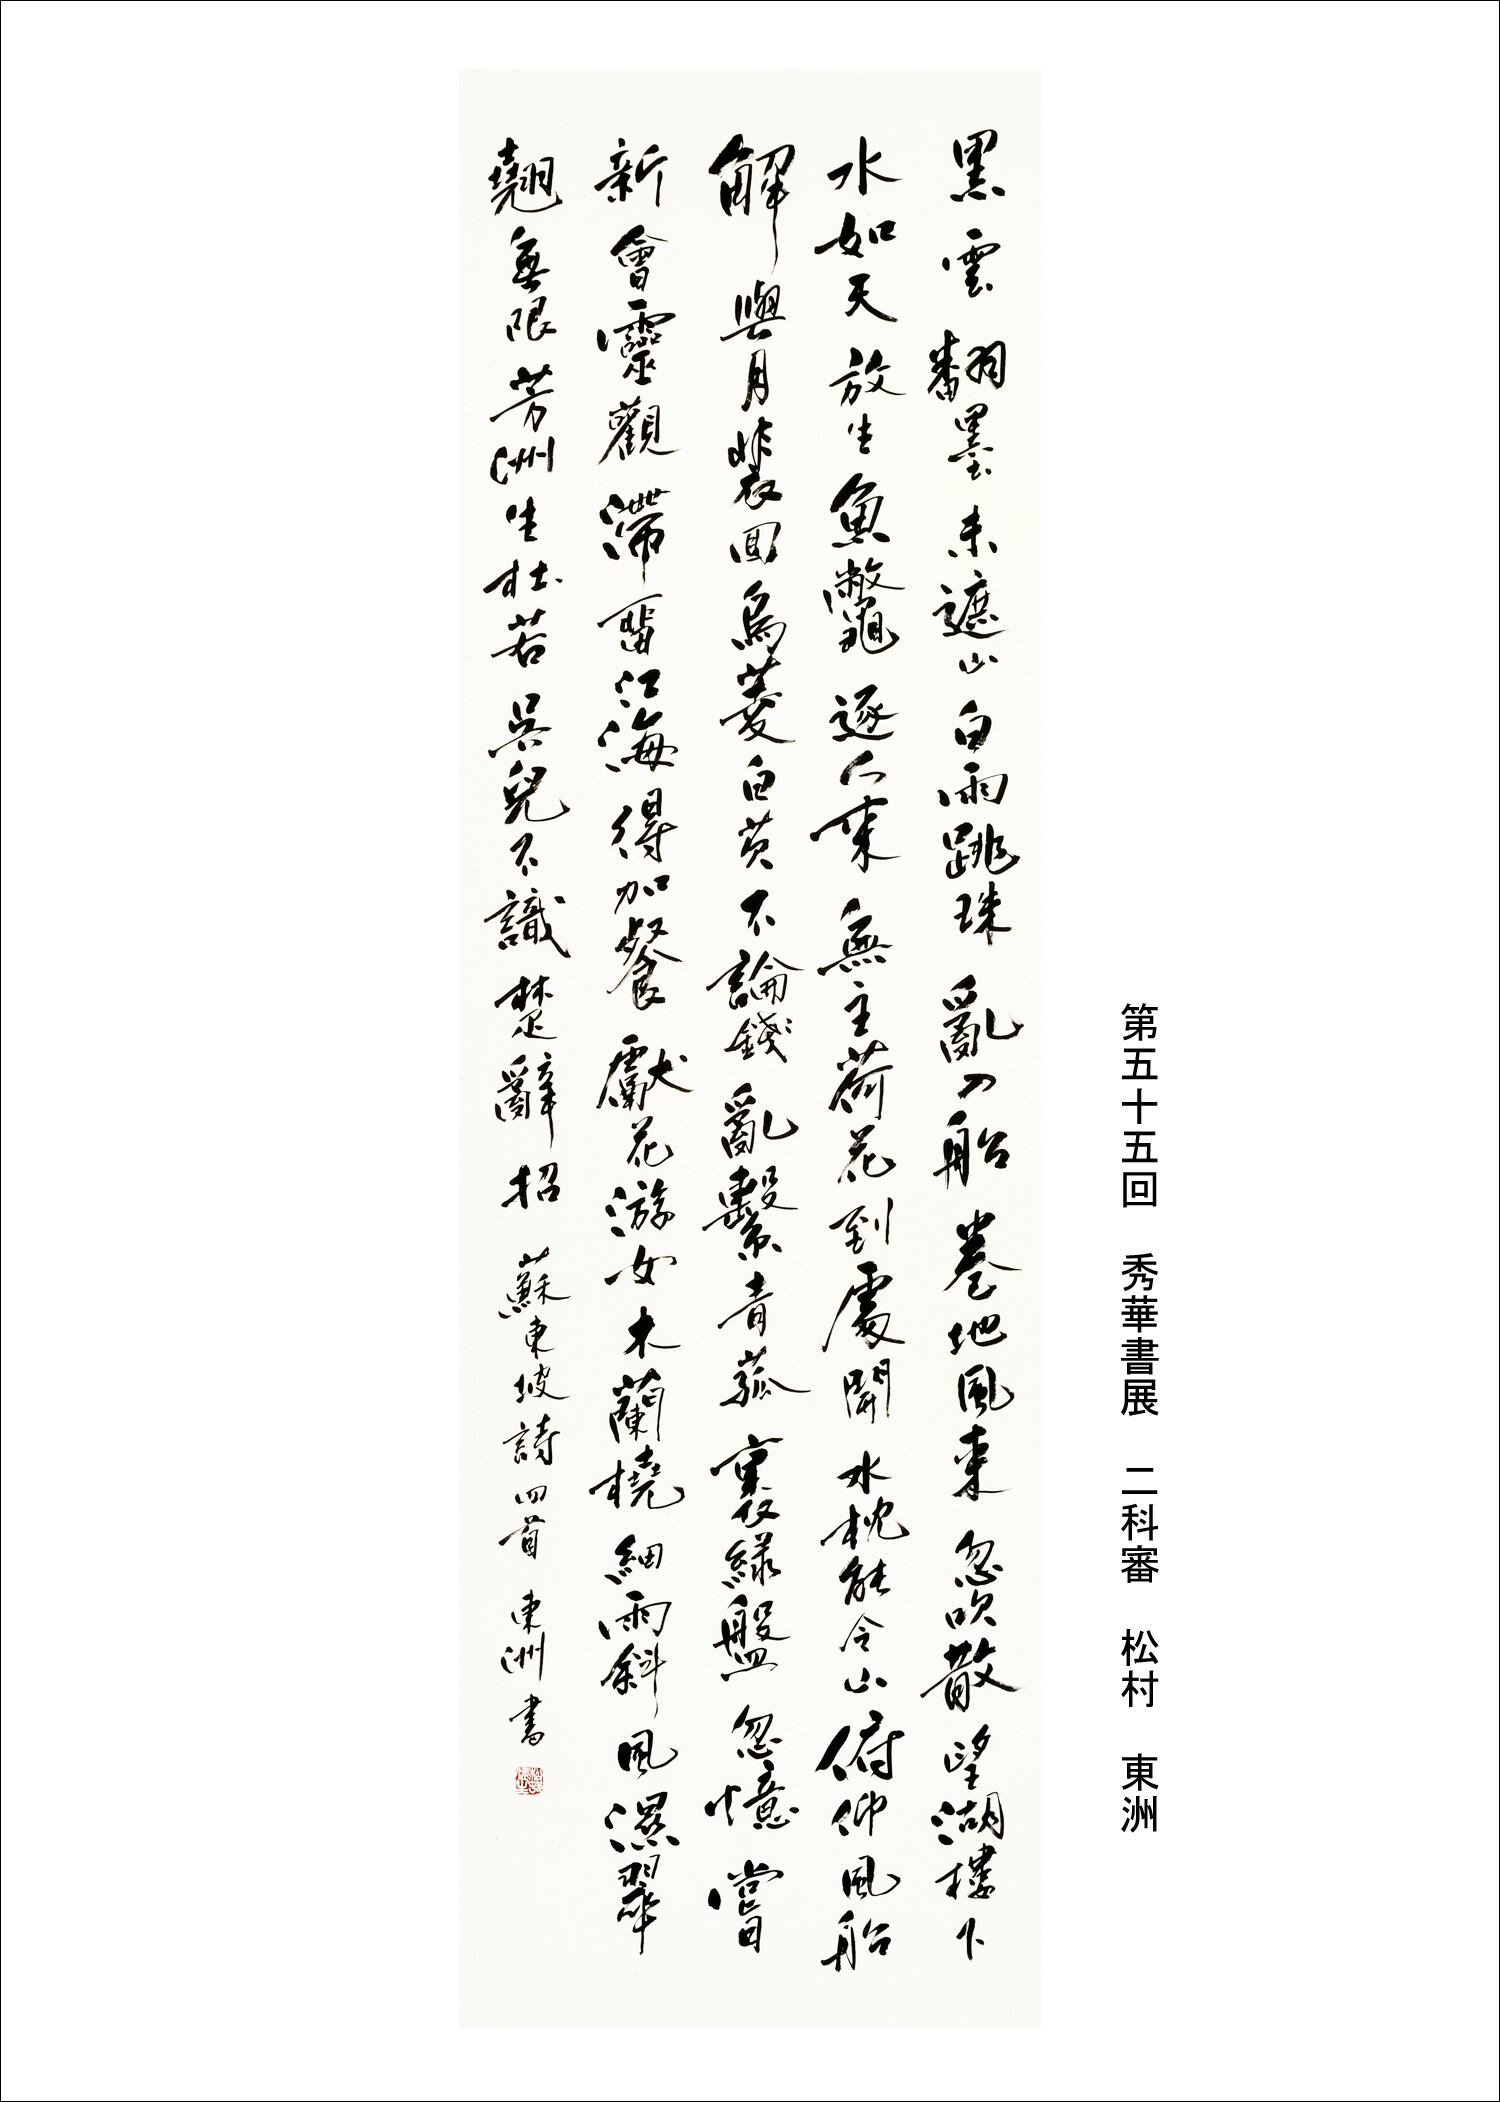 第五十五回　秀華書展　二科審　松村　東洲
黒雲翻墨未遮山白雨跳珠亂入船卷地風來忽吹散望湖樓下
水如天放生魚鼈逐人來無主荷花到處開水枕能令山俯仰風船
解與月裴回烏菱白芡不論錢亂繫青菰裹綠盤忽憶嘗
新會靈觀滯畱江海得加餐獻花游女木蘭橈細雨斜風濕翠
翹無限芳洲生杜若吳兒不識楚辭招　蘇東坡詩四首　東洲書